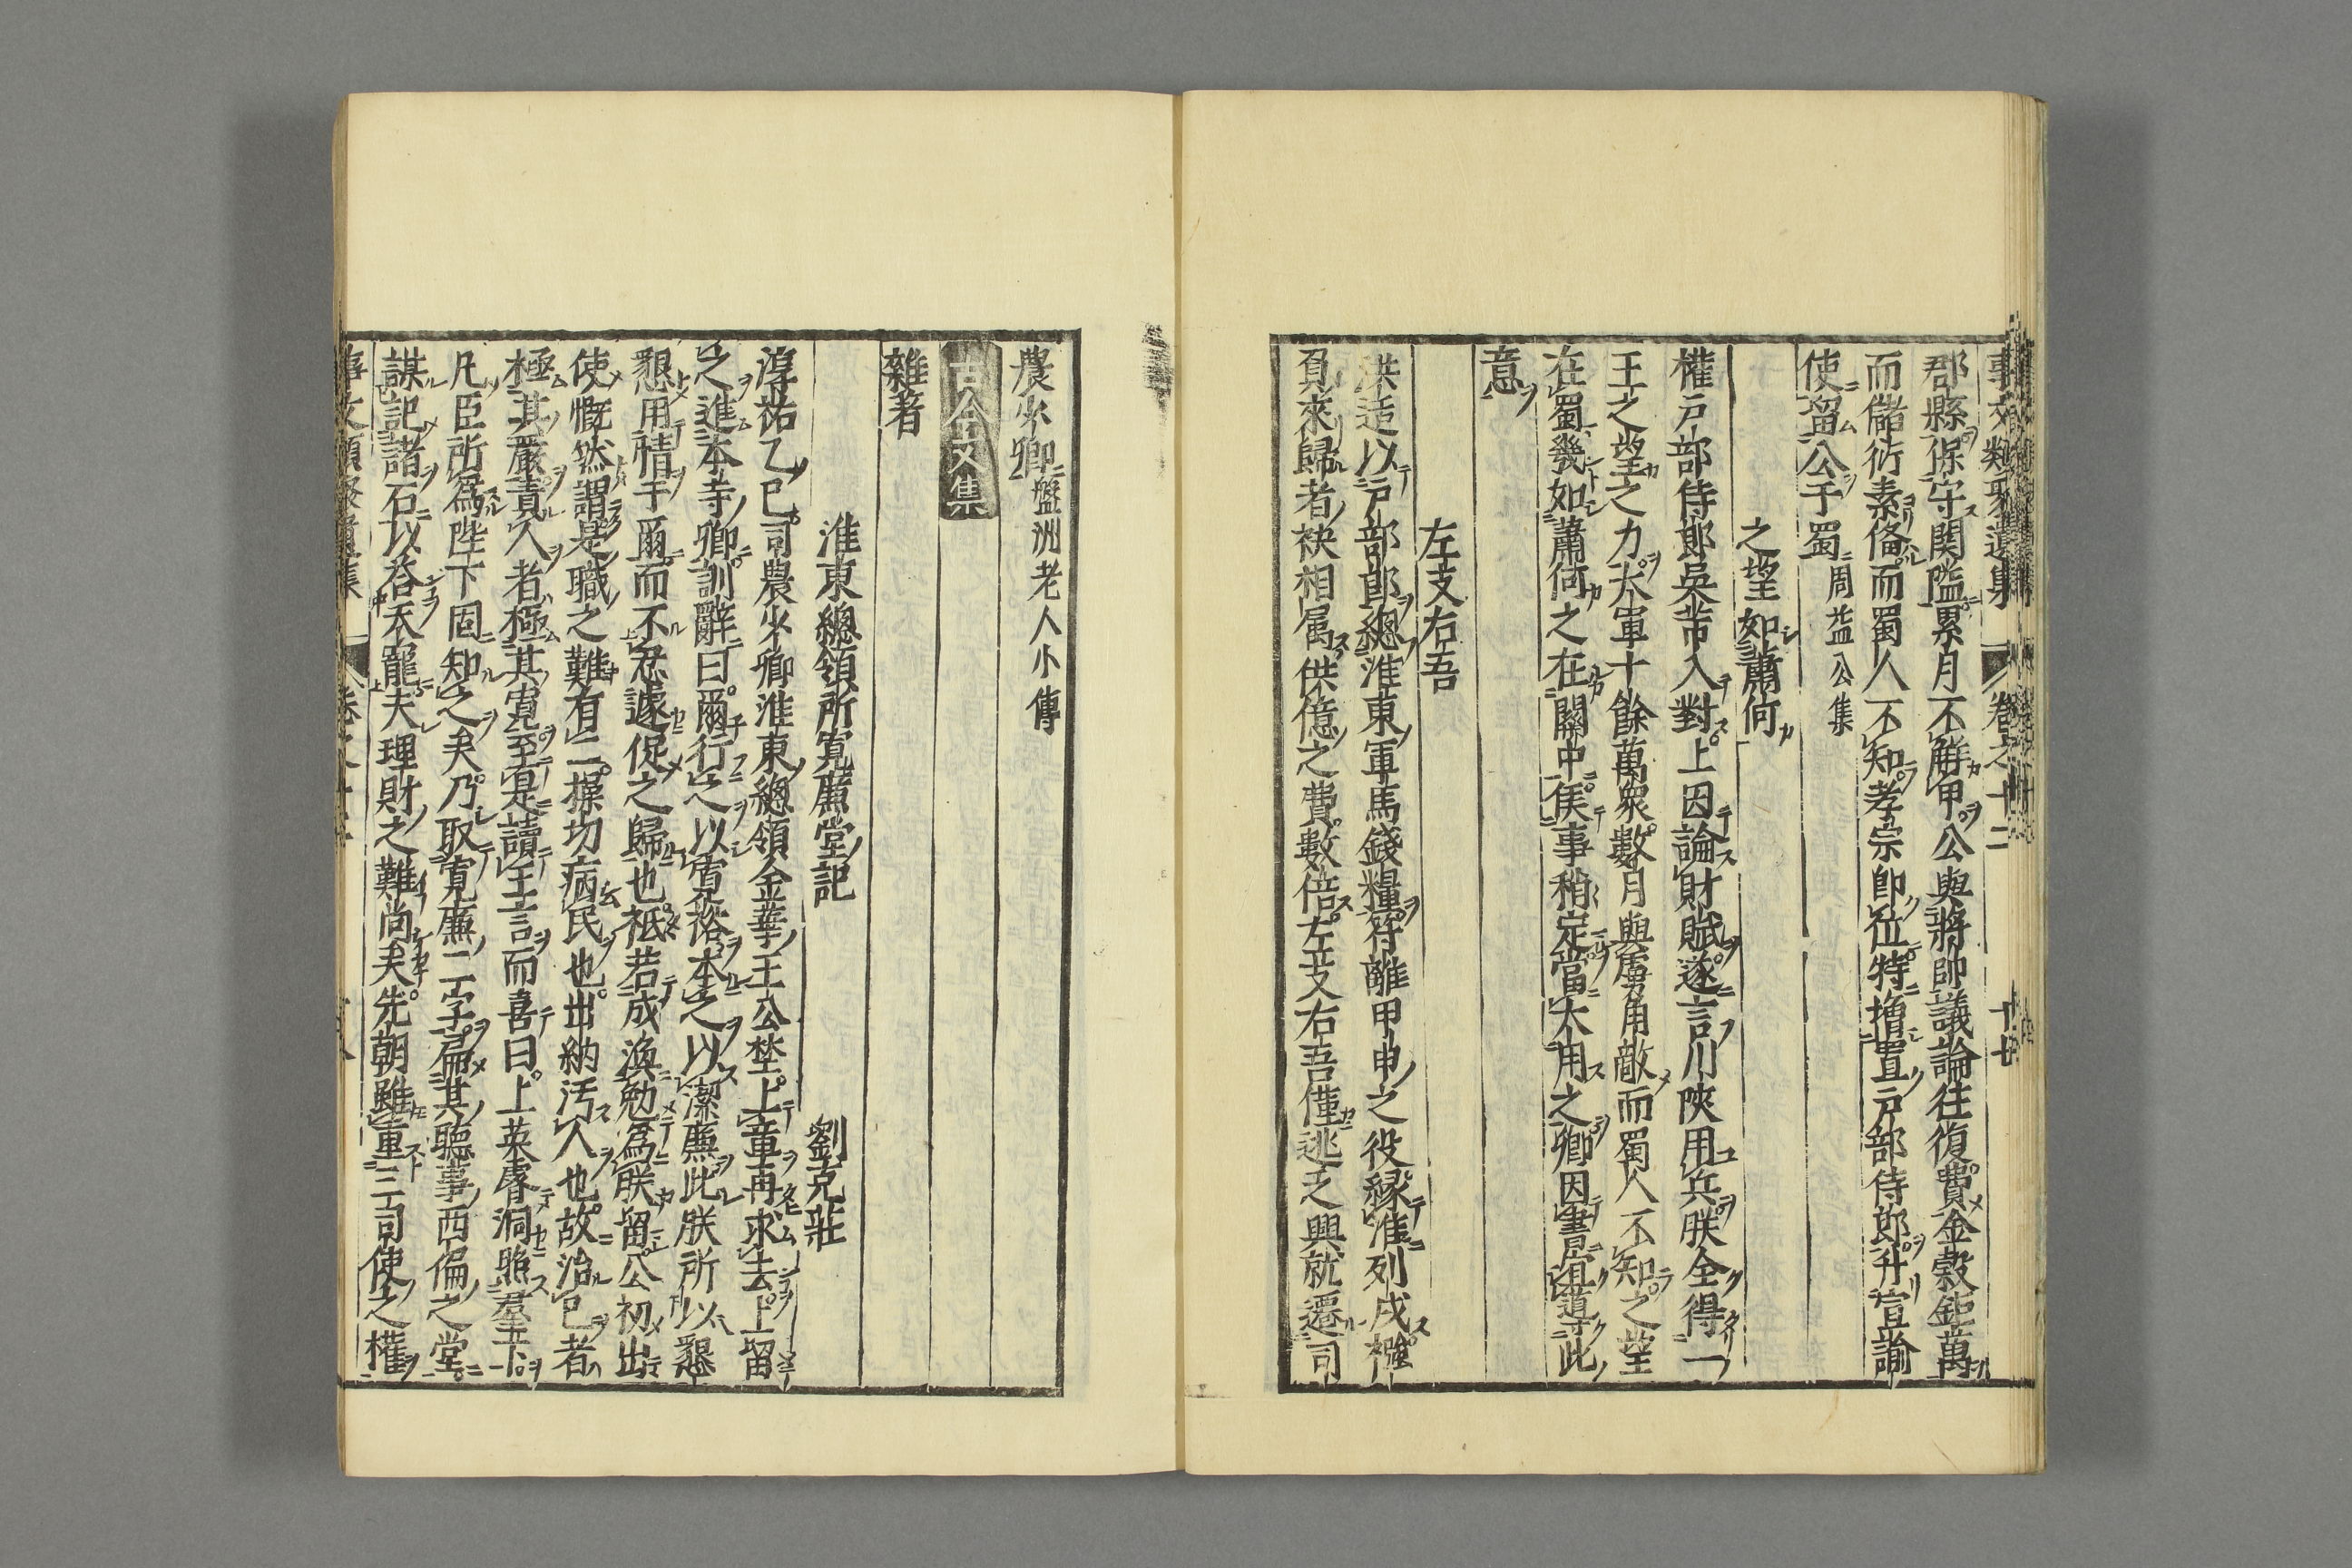 事文類聚遺集 卷之十二 十七
郡縣保守関隘累月不解甲公與將帥議論往復費金穀鉅萬
而儲偫素俻而蜀人不知孝宗即位特増置戸部侍郎升宣諭
使留公于蜀 周益公集
之望如蕭何
權戸部侍郎吳芾入對上因論財賦遂言川陝用兵朕全得一
王之望之力大軍十餘萬衆數月與虜角敵而蜀人不知之望
在蜀幾如蕭何之在關中俟事稍定當大用之卿因書冝導此
意
左支右吾
洪适以戸部郎總淮東軍馬錢糧符離甲申之役縁淮列戍襁
負來歸者袂相属供億之費數倍左支右吾僅逃乏興就遷司
農少卿 盤洲老人小傳
古今文集
雜著
淮東總領所寛廉堂記 劉克莊
淳祐乙巳司農少卿淮東總領金華王公埜上章再求去上留
之進本寺卿訓辭曰爾行之以寛裕本之以潔廉此朕所以懇
懇用情于爾而不忍遽促之歸也祗若成渙勉為朕留公初出
使慨然謂是職之難有二操切病民也出納汚人也故治已者
極其嚴責人者極其寛至是讀王言而喜曰上英睿洞照羣下
凡臣所為陛下固知之矣乃取寛廉二字扁其聽事西偏之堂
謀記諸石以荅天寵夫理財之難尚矣先朝雖重三司使之權